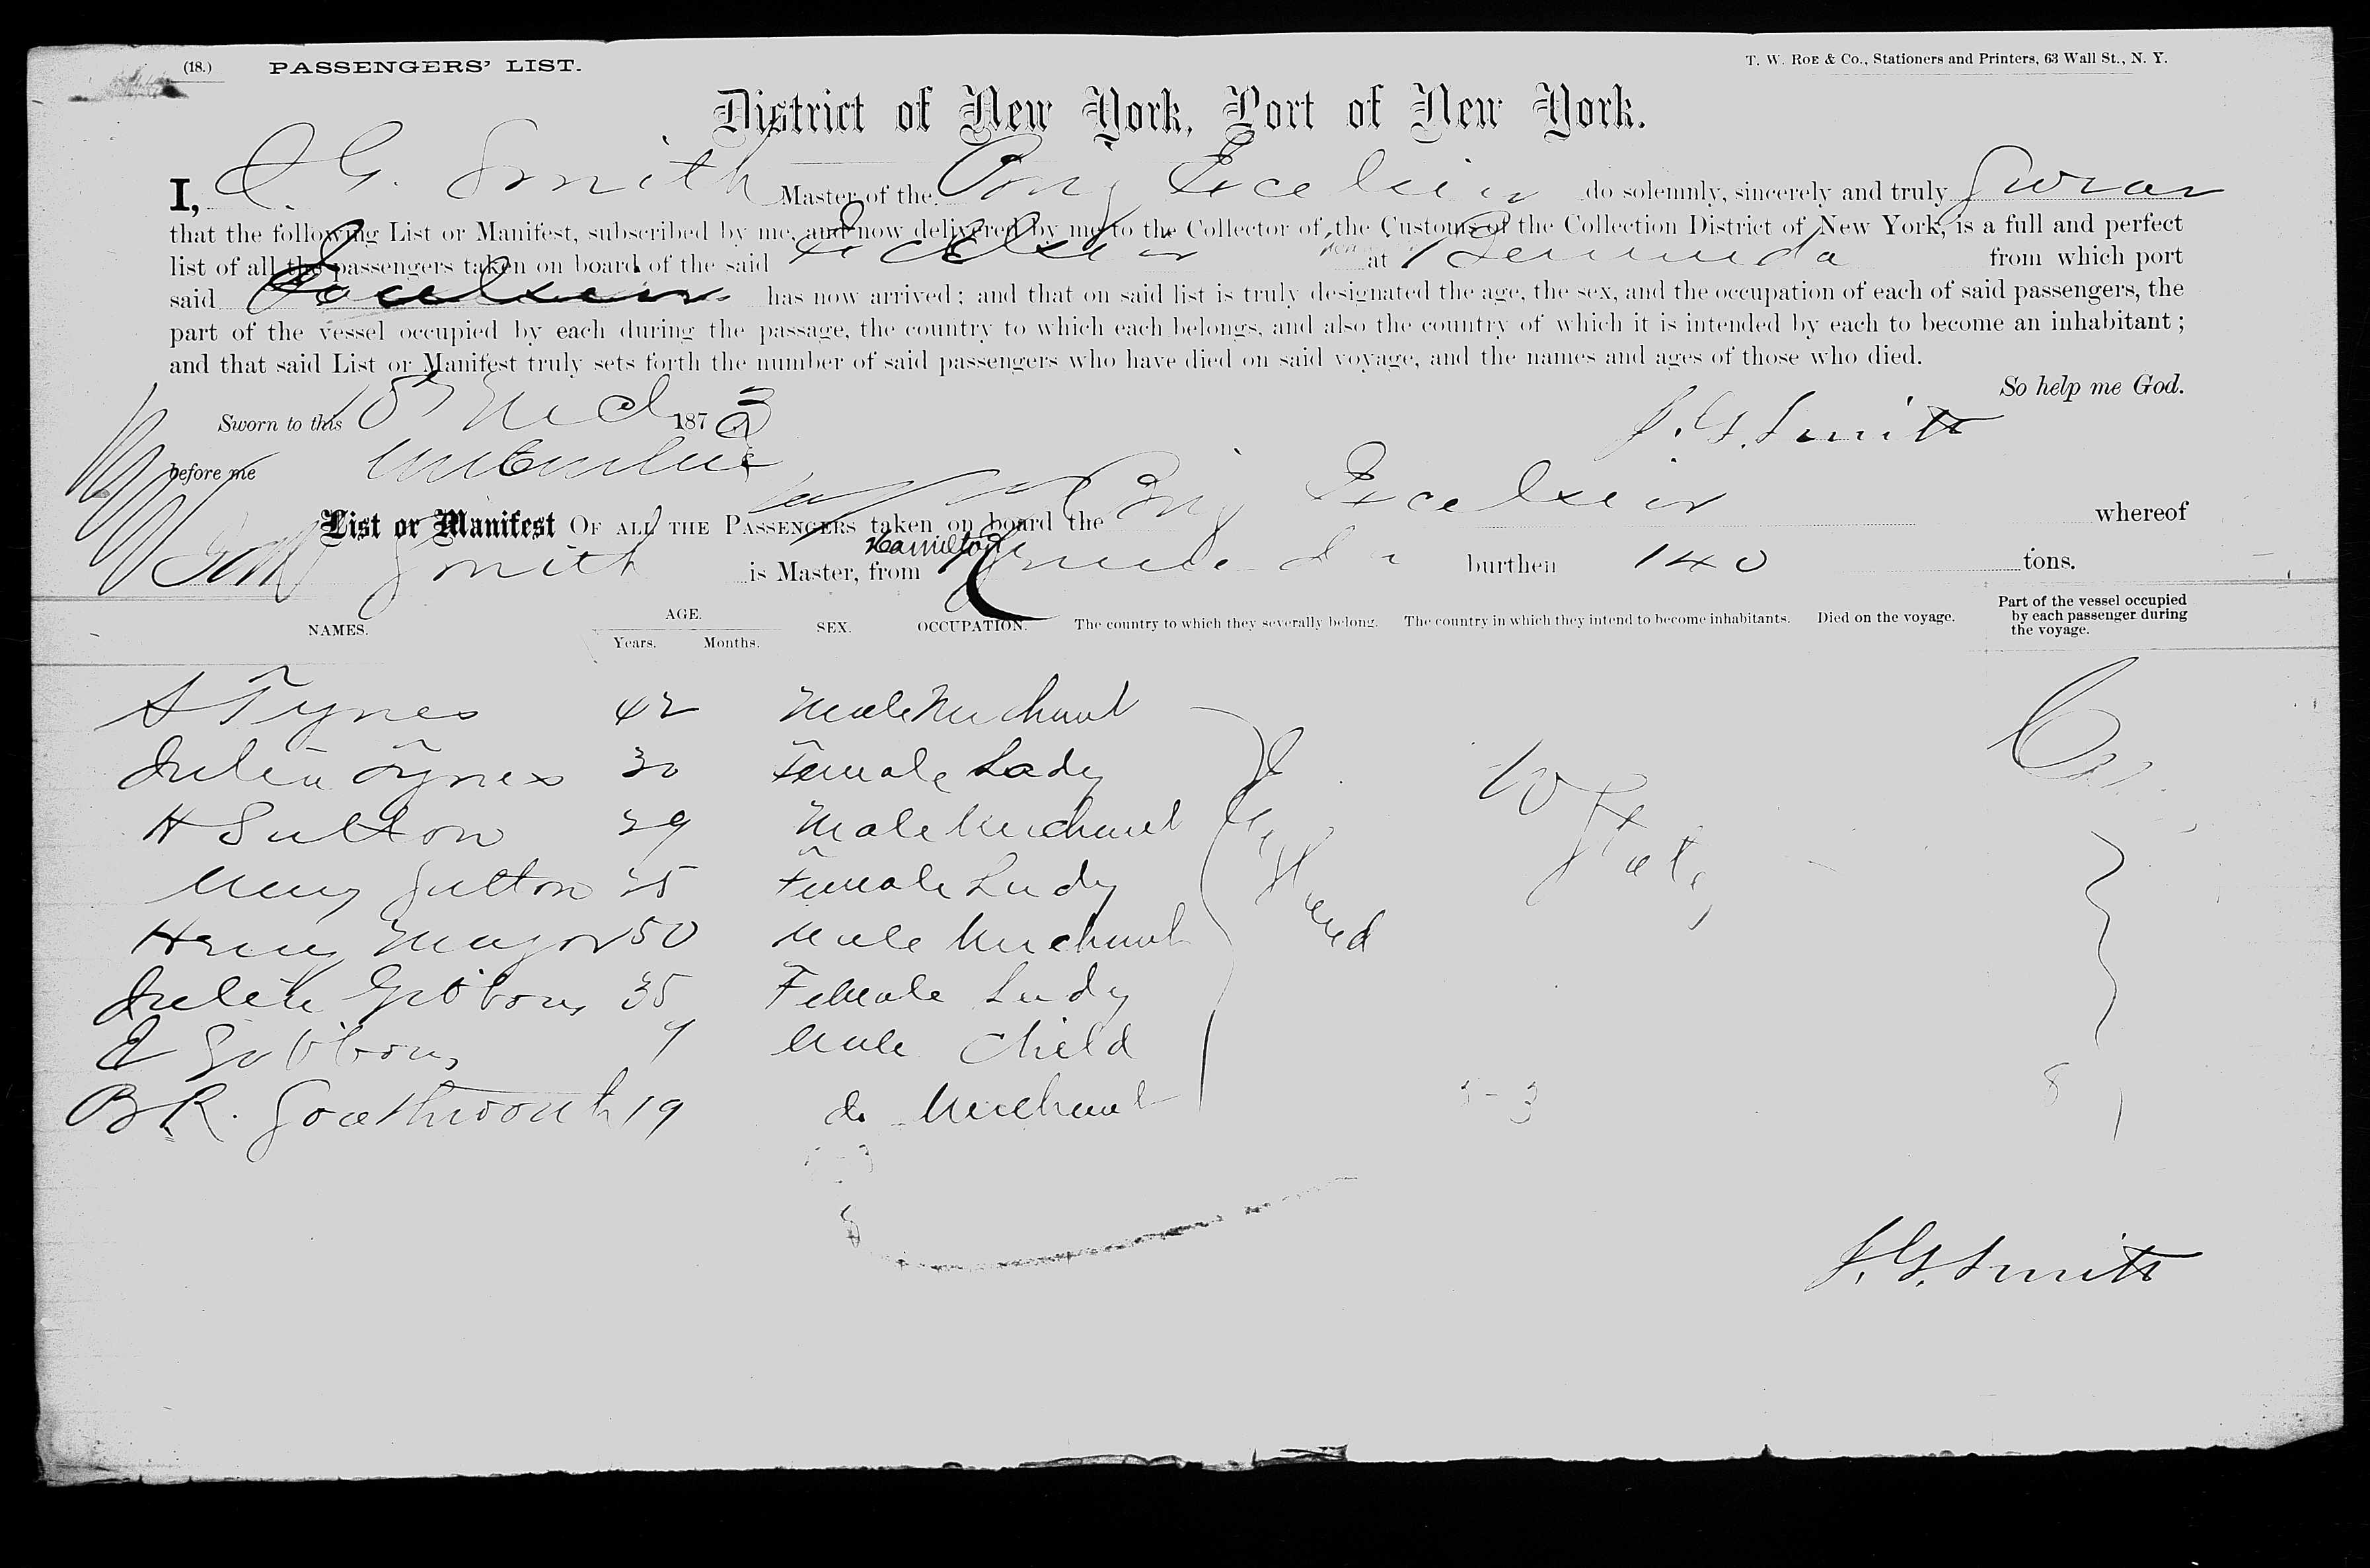 (18.) PASSENGERS' LIST. T. W. ROE & Co., Stationers and Printers, 63 Wall St., N. Y.
District of New York, Port of New York.
I, J. G. Smith Master of the Brig Excelsior do solemnly, sincerely and truly Swear
that the following List or Manifest, subscribed by me, and now delivered by me to the Collector of the Customs of the Collection District of New York, is a full and perfect
list of all the passengers taken on board of the said Excelsior at Bermuda from which port
said Excelsior has now arrived; and that on said list is truly designated the age, the sex, and the occupation of each of said passengers, the
part of the vessel occupied by each during the passage, the country to which each belongs, and also the country of which it is intended by each to become an inhabitant;
and that said List or Manifest truly sets forth the number of said passengers who have died on said voyage, and the names and ages of those who died.
So help me God.
Sworn to this 187 3 J. G. Smith
before me
List or Manifest OF ALL THE PASSENGERS taken on board the Brig Excelsior whereof
Smith is Master, from Hamilton Bermuda burthen 140 tons.
NAMES. AGE. Years. Months. SEX. OCCUPATION. The country to which they severally belong. The country in which they intend to become inhabitants. Died on the voyage. Part of the vessel occupied by each passenger during the voyage.
S Tynes 42 Male Merchant
Julia Tynes 30 Female Lady
H Sutton 29 Male Merchant
Mary Sutton 25 Female Lady
Henry Major 50 Male Merchant
Julia Gibbons 35 Female Lady
E Gibbons 9 Male Child
B R. Southworth 19 do Merchant
J. G. Smith